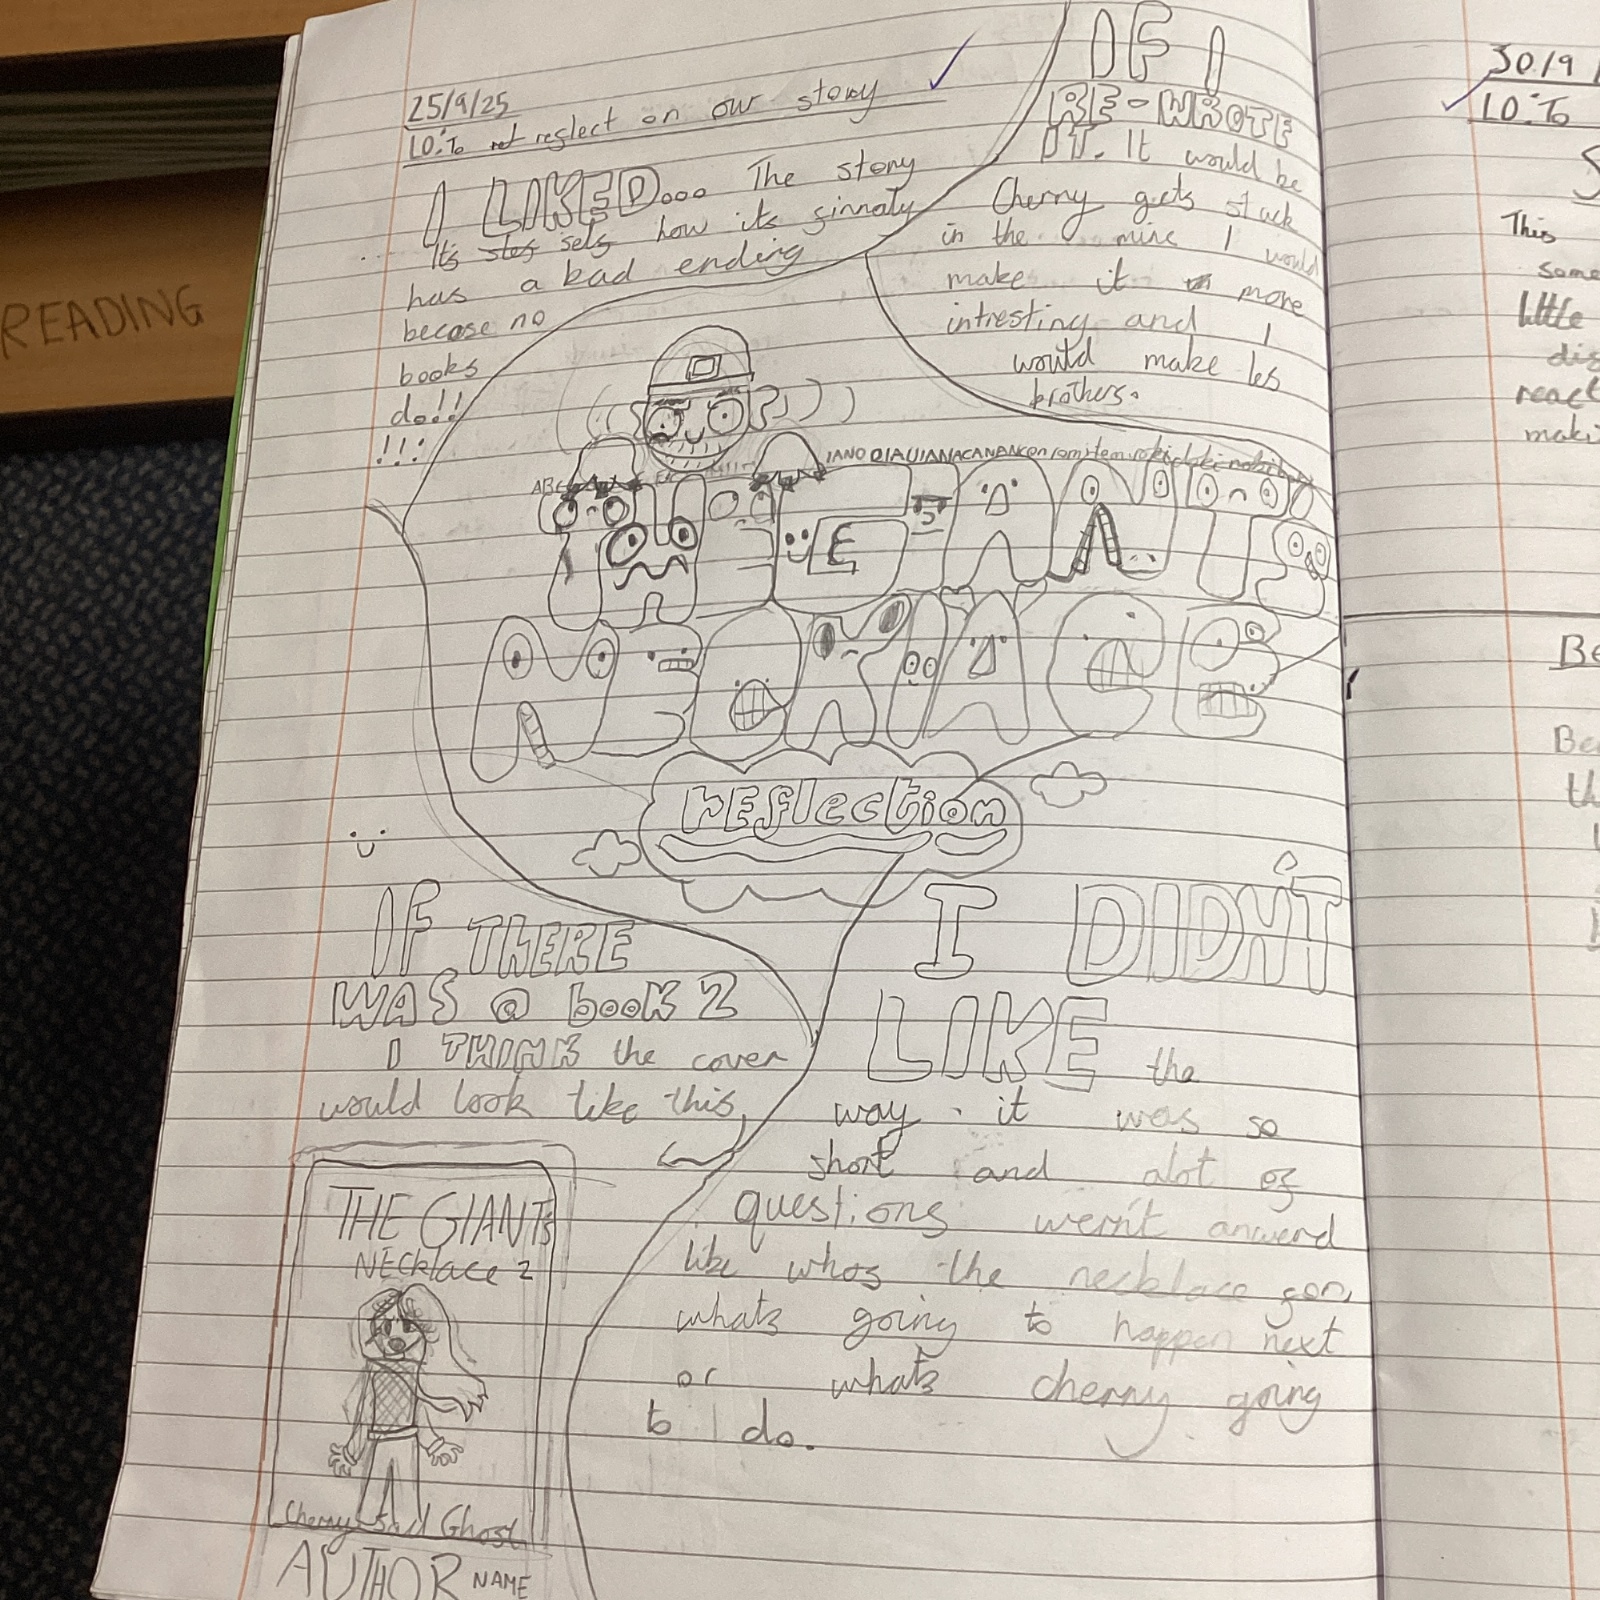 READING
25/9/25
LO: To reglect on our story
I LIKED... The story
Its how its finnaly
has a bad ending
becose no
books
do!!
!!!
IF I
RE-WROTE
IT. It would be
Cherry gets stuck
in the mine I would
make it more
intresting and I
would make les
brothers.
THE GIANTS
NECKLACE
REflection
IF THERE
WAS a book 2
I THINK the cover
would look like this,
THE GIANTs
NECklace 2
Cherry Ghost
AUTHOR NAME
I DIDN'T
LIKE the
way it was so
short and alot of
questions wern't anwerd
like whos the necklace
whats going to happen next
or whats cherry going
to do.
30/9
LO: To
This
some
little
dis
react
maki
Be
Be
th